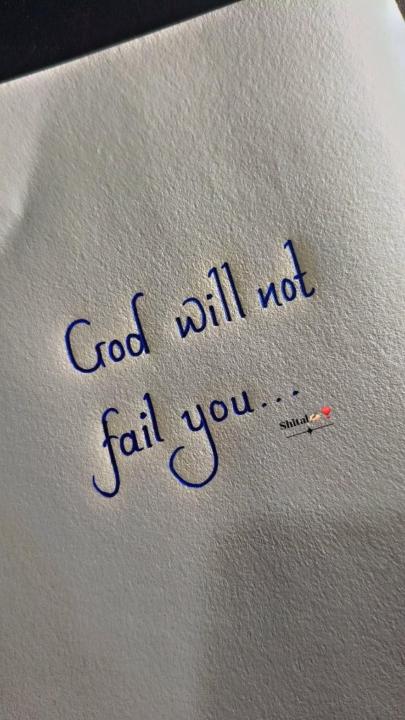 God will not
fail you...
Shital✍🏻❤️